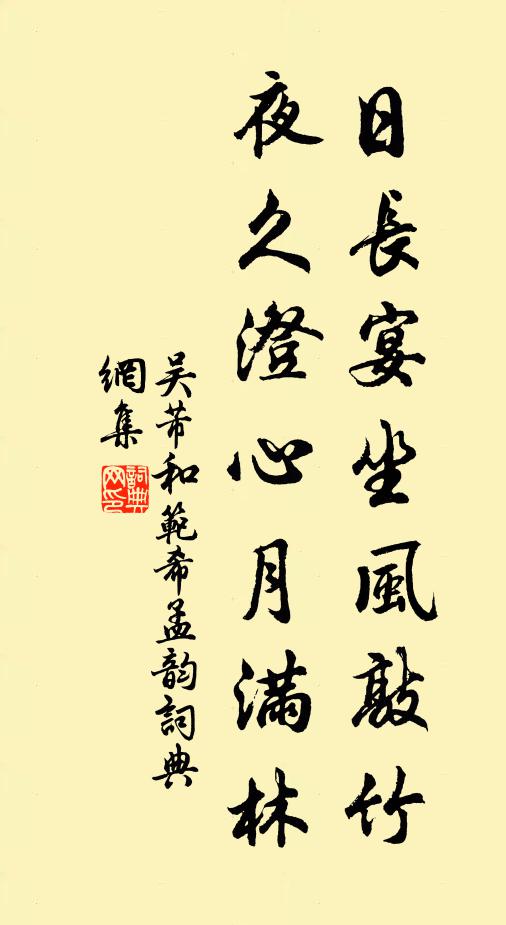 日長宴坐風敲竹
夜久澄心月滿林
吴芾和範希孟韵詞典
網集
詞典網印